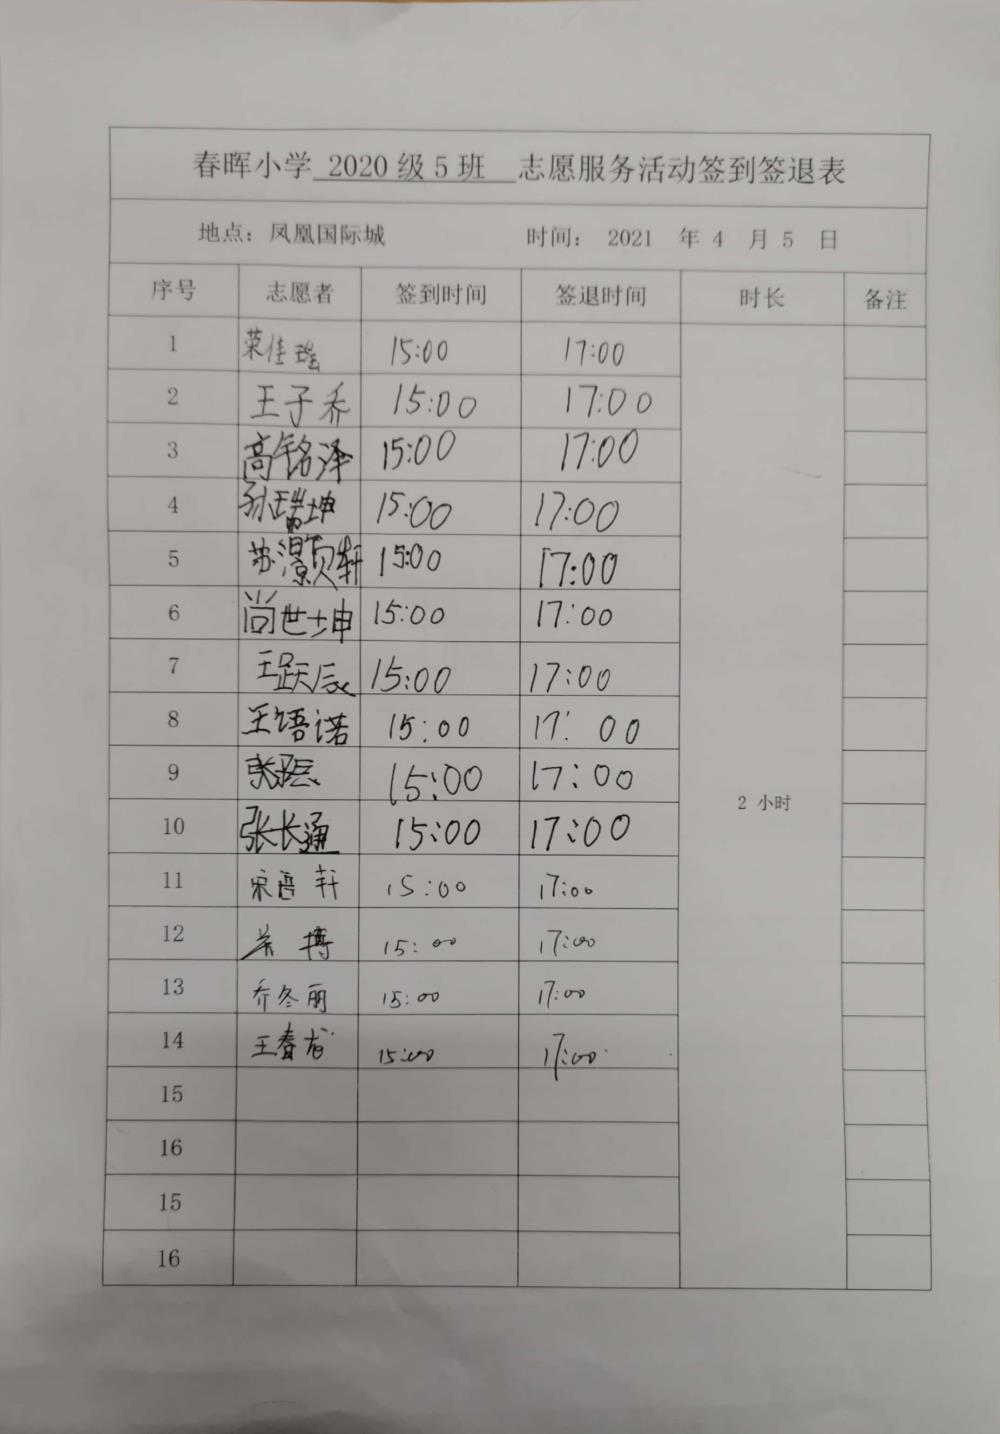 春晖小学 2020 级 5 班 志愿服务活动签到签退表
地点：凤凰国际城 时间： 2021 年 4 月 5 日
序号 志愿者 签到时间 签退时间 时长 备注
1 荣佳瑶 15:00 17:00
2 王子乔 15:00 17:00
3 高铭泽 15:00 17:00
4 孙瑞坤 15:00 17:00
5 苏灏轩 15:00 17:00
6 尚世坤 15:00 17:00
7 王跃辰 15:00 17:00
8 王语诺 15:00 17:00
9 15:00 17:00
2 小时
10 张长通 15:00 17:00
11 宋 轩 15:00 17:00
12 博 15:00 17:00
13 乔冬丽 15:00 17:00
14 王春龙 15:00 17:00
15
16
15
16